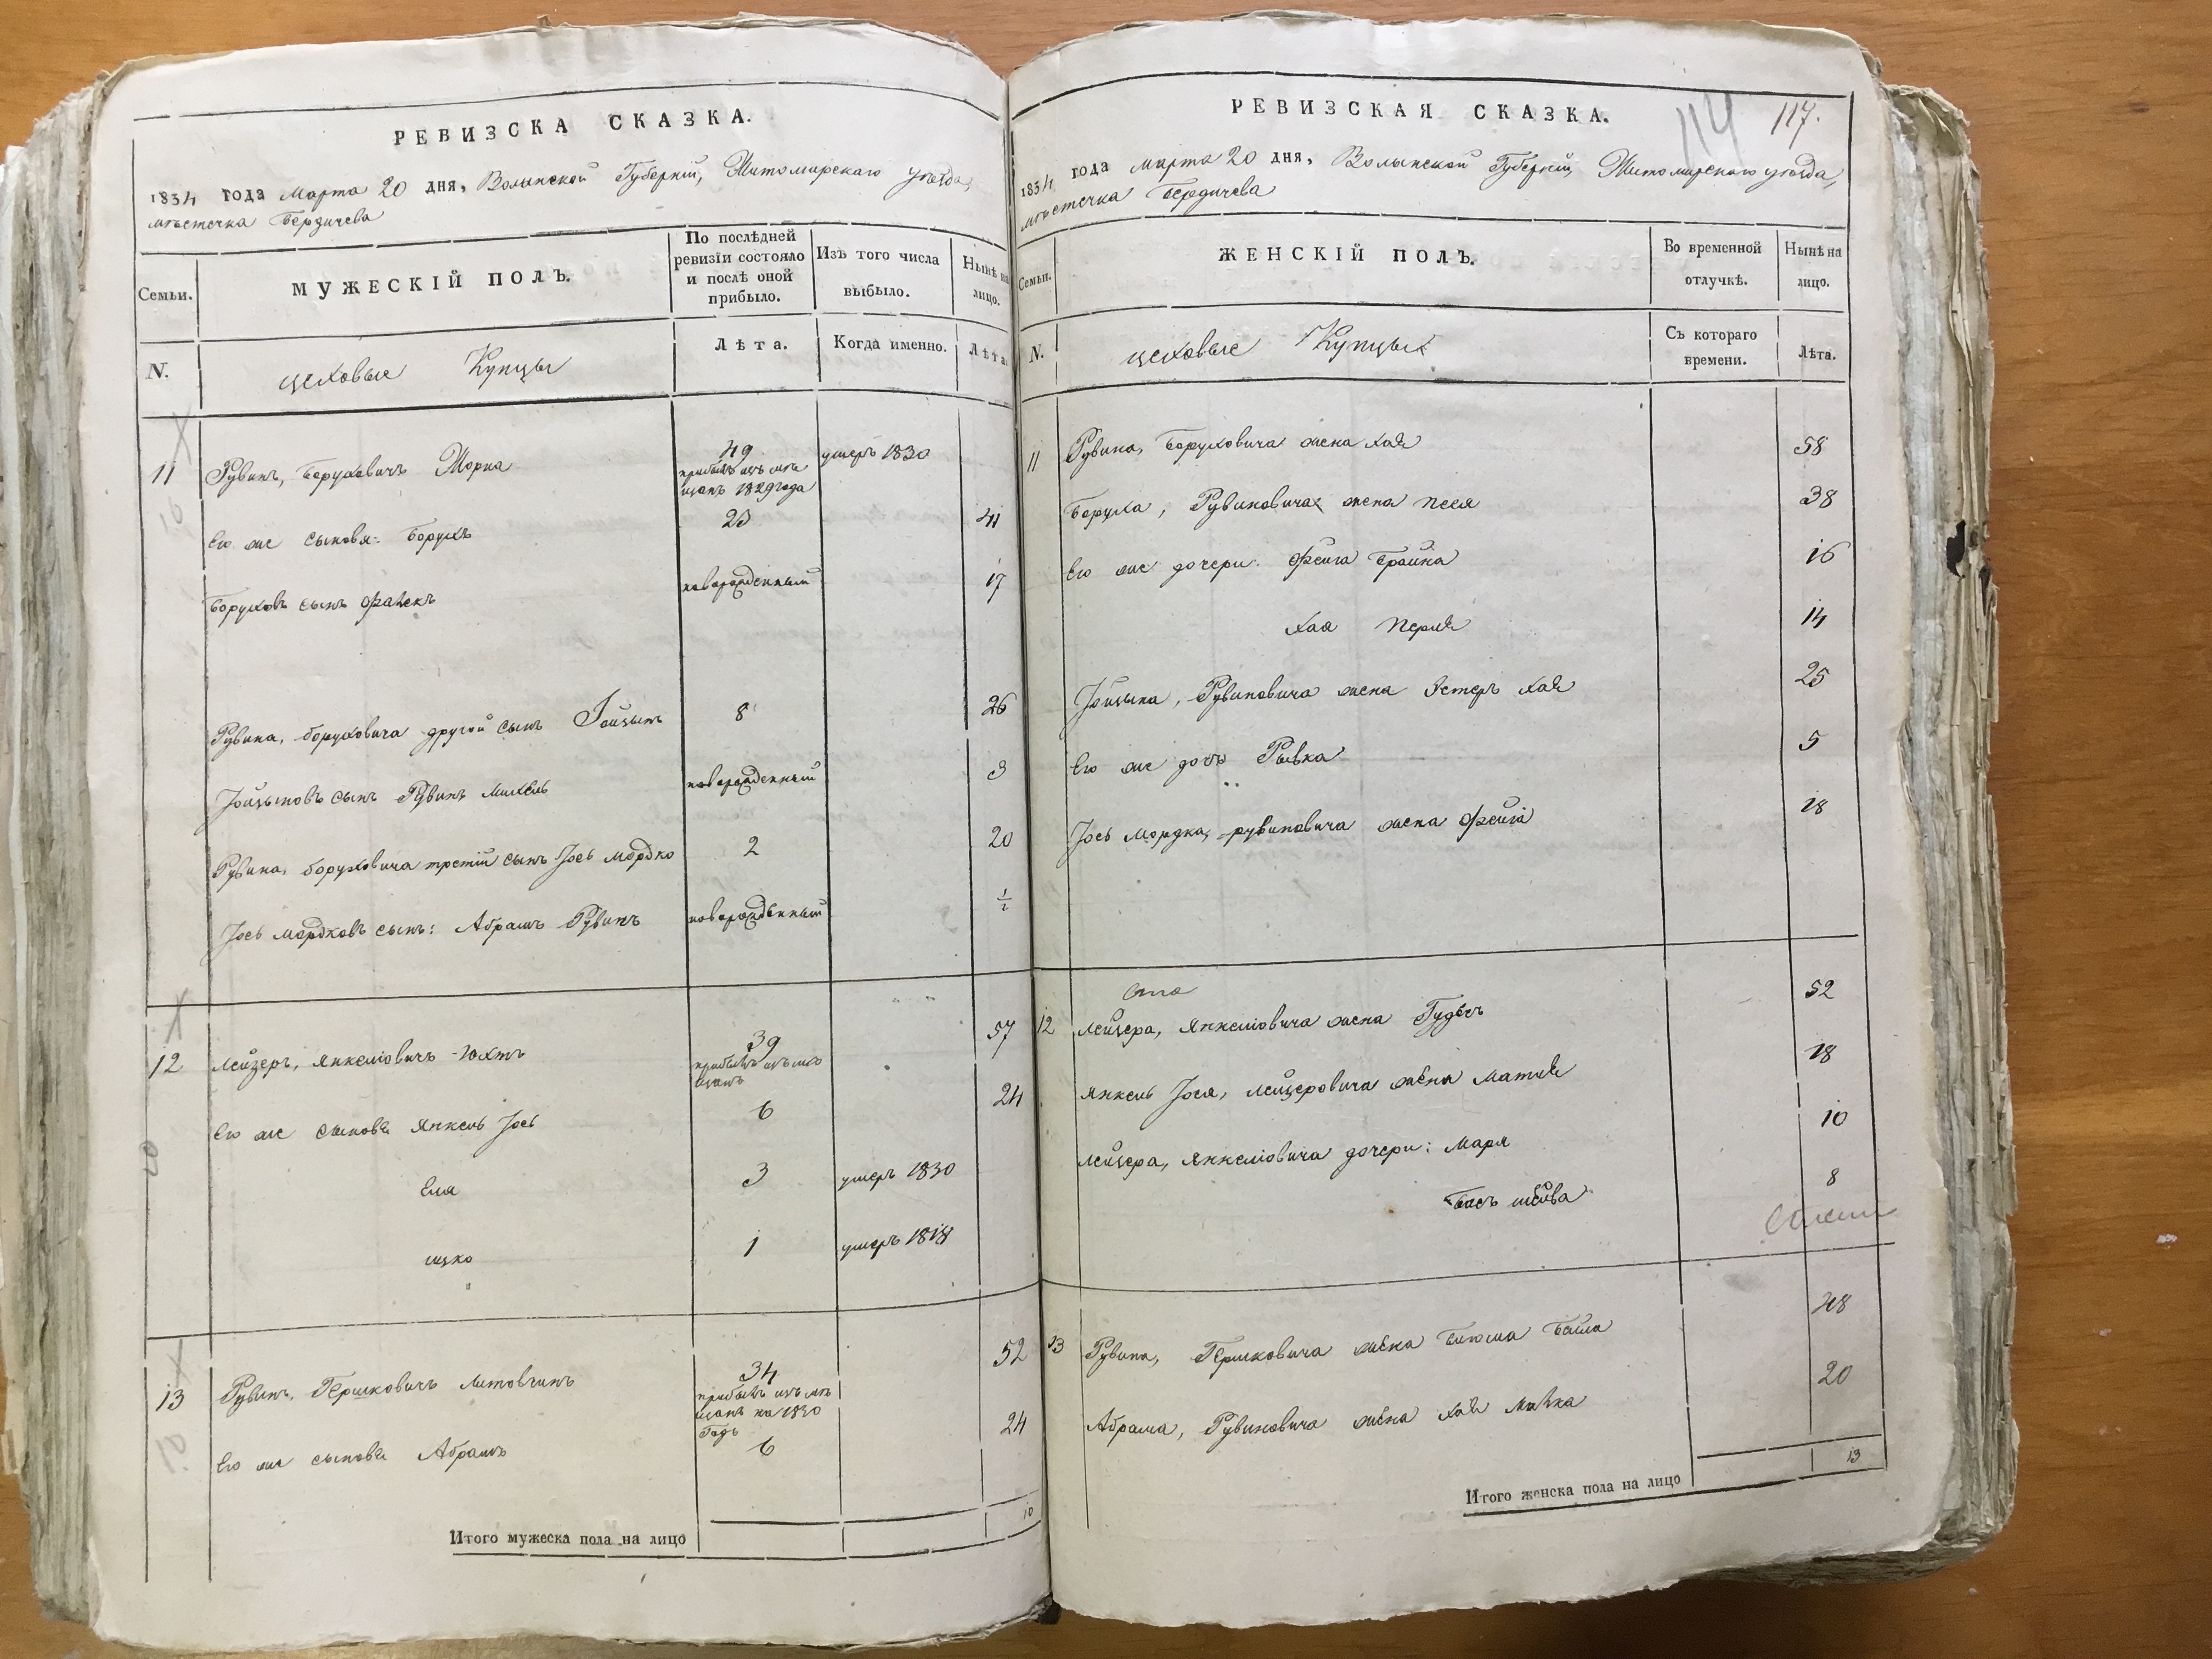 РЕВИЗСКА СКАЗКА.
1834 года Марта 20 дня, Волынской Губерніи, Житомирскаго уѣзда,
мѣстечка Бердичева
Семьи.
МУЖЕСКІЙ ПОЛЪ.
По послѣдней ревизіи состояло и послѣ оной прибыло.
Изъ того числа выбыло.
Нынѣ на лицо.
N.
цеховые Купцы
Лѣта.
Когда именно.
Лѣта.
11 Рувинъ, Боруховичъ 49 умеръ 1830
прибылъ изъ мѣ
щанъ 1829 года
Его же сыновья: Борухъ 23 41
Боруховъ сынъ новорожденный 17
Рувина, боруховича другой сынъ Іойцынъ 8 26
Іойцыновъ сынъ Рувинъ Михель новорожденный 3
Рувина, боруховича третій сынъ Іось Мордко 2 20
Іось Мордковъ сынъ: Абрамъ Рувинъ новорожденный ½
12 Лейзеръ, Янкеліовичъ 39 57
прибылъ изъ мѣ
щанъ
Его же сыновья Янкель Іось 6 24
Еля 3 умеръ 1830
ицко 1 умеръ 1818
13 Рувинъ, Гершковичъ Литовчинъ 34 52
прибылъ изъ мѣ
щанъ на 1830
Годъ
Его же сыновья Абрамъ 6 24
Итого мужеска пола на лицо 10
РЕВИЗСКАЯ СКАЗКА.
114 117.
1834 года марта 20 дня, Волынской Губерніи, Житомирскаго уѣзда,
мѣстечка Бердичева
Семьи.
ЖЕНСКІЙ ПОЛЪ.
Во временной отлучкѣ.
Нынѣ на лицо.
N.
цеховые Купцы
Съ котораго времени.
Лѣта.
11 Рувина, Боруховича жена Хая 58
Боруха, Рувиновича жена Песя 38
Его же дочери: Фейга Брайна 16
Хая Перля 14
Іойцына, Рувиновича жена Эстеръ Хая 25
Его же дочь Рывка 5
Іось Мордка, рувиновича жена Фейга 18
12 Лейзера, Янкеліовича жена 52
Янкель Іося, Лейзеровича жена Матля 18
Лейзера, Янкеліовича дочери: Маря 10
Бась шейва 8
13 Рувина, Гершковича жена Блюма Бейла 48
Абрама, Рувиновича жена Хая 20
Итого женска пола на лицо 13